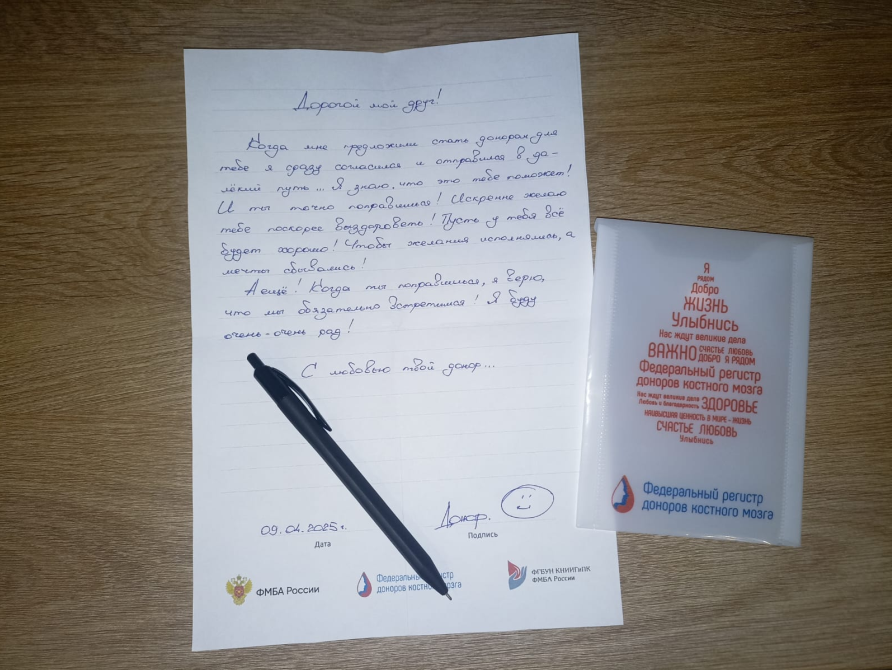 Дорогой мой друг!
Когда мне предложили стать донором для
тебе я сразу согласился и отправился в да-
лёкий путь... Я знаю, что это тебе поможет!
И ты точно поправишься! Искренне желаю
тебе поскорее выздороветь! Пусть у тебя всё
будет хорошо! Чтобы желания исполнялись, а
мечты сбывались!
А ещё! Когда ты поправишься, я верю,
что мы обязательно встретимся! Я буду
очень-очень рад!
С любовью твой донор...
09.04.2025 г.
Дата
Донор.
Подпись
ФМБА России
Федеральный регистр
доноров костного мозга
ФГБУН КНИИГиПК
ФМБА России
Я
РЯДОМ
Добро
ЖИЗНЬ
Улыбнись
Нас ждут великие дела
ВАЖНО СЧАСТЬЕ ЛЮБОВЬ
ДОБРО Я РЯДОМ
Федеральный регистр
доноров костного мозга
Нас ждут великие дела
Любовь и благодарность ЗДОРОВЬЕ
НАИВЫСШАЯ ЦЕННОСТЬ В МИРЕ - ЖИЗНЬ
СЧАСТЬЕ ЛЮБОВЬ
Улыбнись
Федеральный регистр
доноров костного мозга